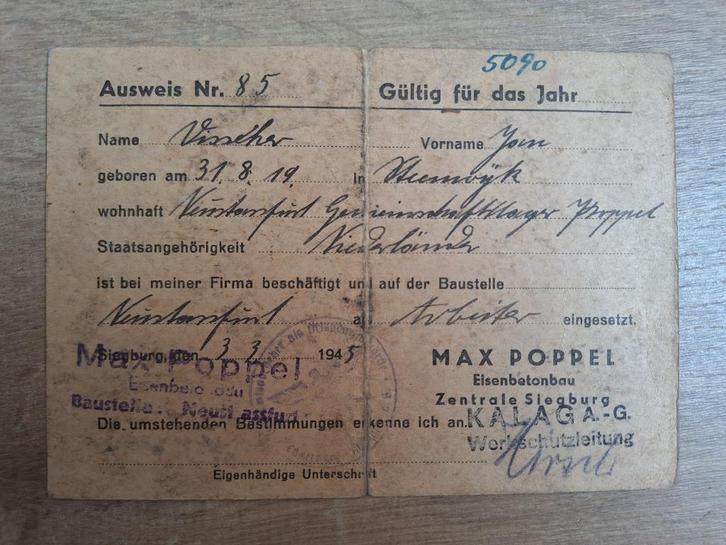 5090
Ausweis Nr. 85 Gültig für das Jahr
Name Visscher Vorname Jan
geboren am 31. 8. 19. in Steenwijk
wohnhaft Neustassfurt Gemeinschaftslager Poppel
Staatsangehörigkeit Niederländer
ist bei meiner Firma beschäftigt und auf der Baustelle
Neustassfurt als Arbeiter eingesetzt.
Siegburg, den 3. 3. 1945
Max Poppel
Eisenbetonbau
Baustelle: Neustassfurt
MAX POPPEL
Eisenbetonbau
Zentrale Siegburg
KALAG A.-G.
Werkschutzleitung
Die umstehenden Bestimmungen erkenne ich an.
Eigenhändige Unterschrift